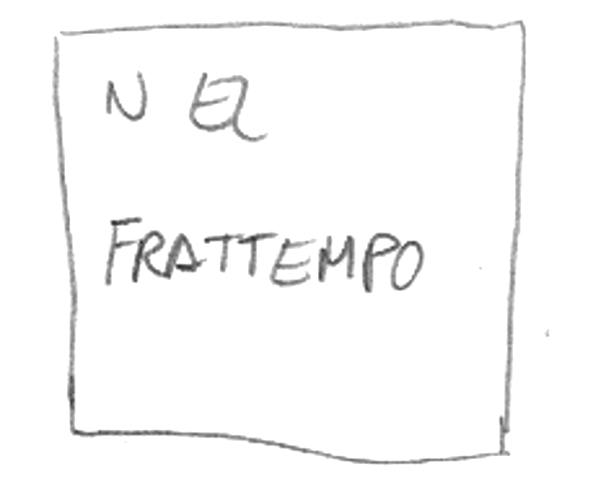 NEL
FRATTEMPO